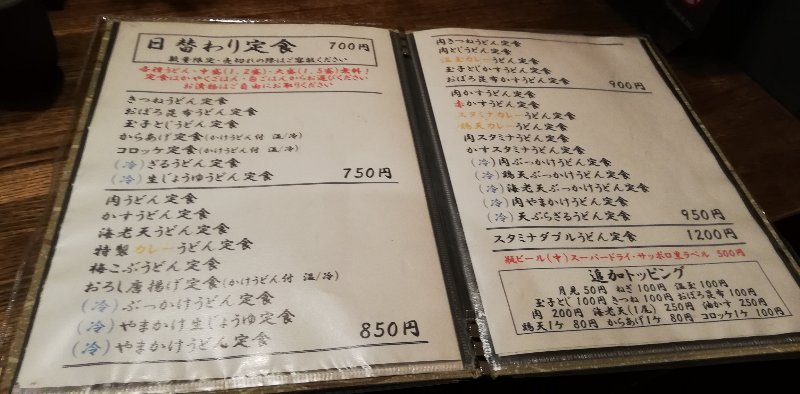 日替わり定食 700円
数量限定・売切れの際はご容赦ください
各種うどん・中盛(1,2盛)・大盛(1,5盛)無料!
定食はかやくごはん・白ごはんからお選びください
お漬物はご自由にお取りください
きつねうどん定食
おぼろ昆布うどん定食
玉子とじうどん定食
からあげ定食(かけうどん付 温/冷)
コロッケ定食(かけうどん付 温/冷)
(冷)ざるうどん定食
(冷)生じょうゆうどん定食 750円
肉うどん定食
かすうどん定食
海老天うどん定食
特製カレーうどん定食
梅こぶうどん定食
おろし唐揚げ定食(かけうどん付 温/冷)
(冷)ぶっかけうどん定食
(冷)やまかけ生じょうゆ定食
(冷)やまかけうどん定食 850円
肉きつねうどん定食
肉とじうどん定食
温玉カレーうどん定食
玉子とじかすうどん定食
おぼろ昆布かすうどん定食 900円
肉かすうどん定食
赤かすうどん定食
スタミナカレーうどん定食
鶏天カレーうどん定食
肉スタミナうどん定食
かすスタミナうどん定食
(冷)肉ぶっかけうどん定食
(冷)鶏天ぶっかけうどん定食
(冷)海老天ぶっかけうどん定食
(冷)肉やまかけうどん定食
(冷)天ぷらざるうどん定食 950円
スタミナダブルうどん定食 1200円
瓶ビール(中)スーパードライ・サッポロ黒ラベル 500円
追加トッピング
月見 50円 ねぎ 100円 温玉 100円
玉子とじ 100円 きつね 100円 おぼろ昆布 100円
肉 200円 海老天(1尾) 250円 油かす 250円
鶏天1ケ 80円 からあげ1ケ 80円 コロッケ1ケ 100円